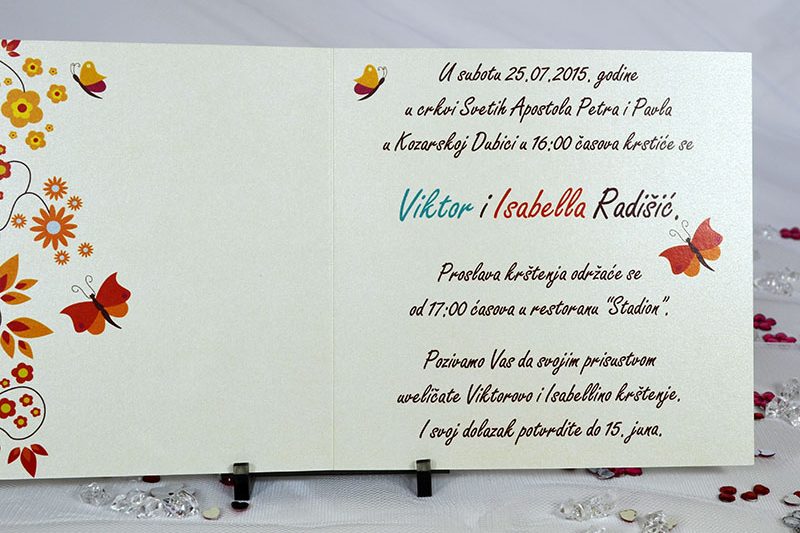 U subotu 25.07.2015. godine
u crkvi Svetih Apostola Petra i Pavla
u Kozarskoj Dubici u 16:00 časova krstiće se
Viktor i Isabella Radišić.
Proslava krštenja održaće se
od 17:00 ćasova u restoranu "Stadion".
Pozivamo Vas da svojim prisustvom
uveličate Viktorovo i Isabellino krštenje.
I svoj dolazak potvrdite do 15. juna.